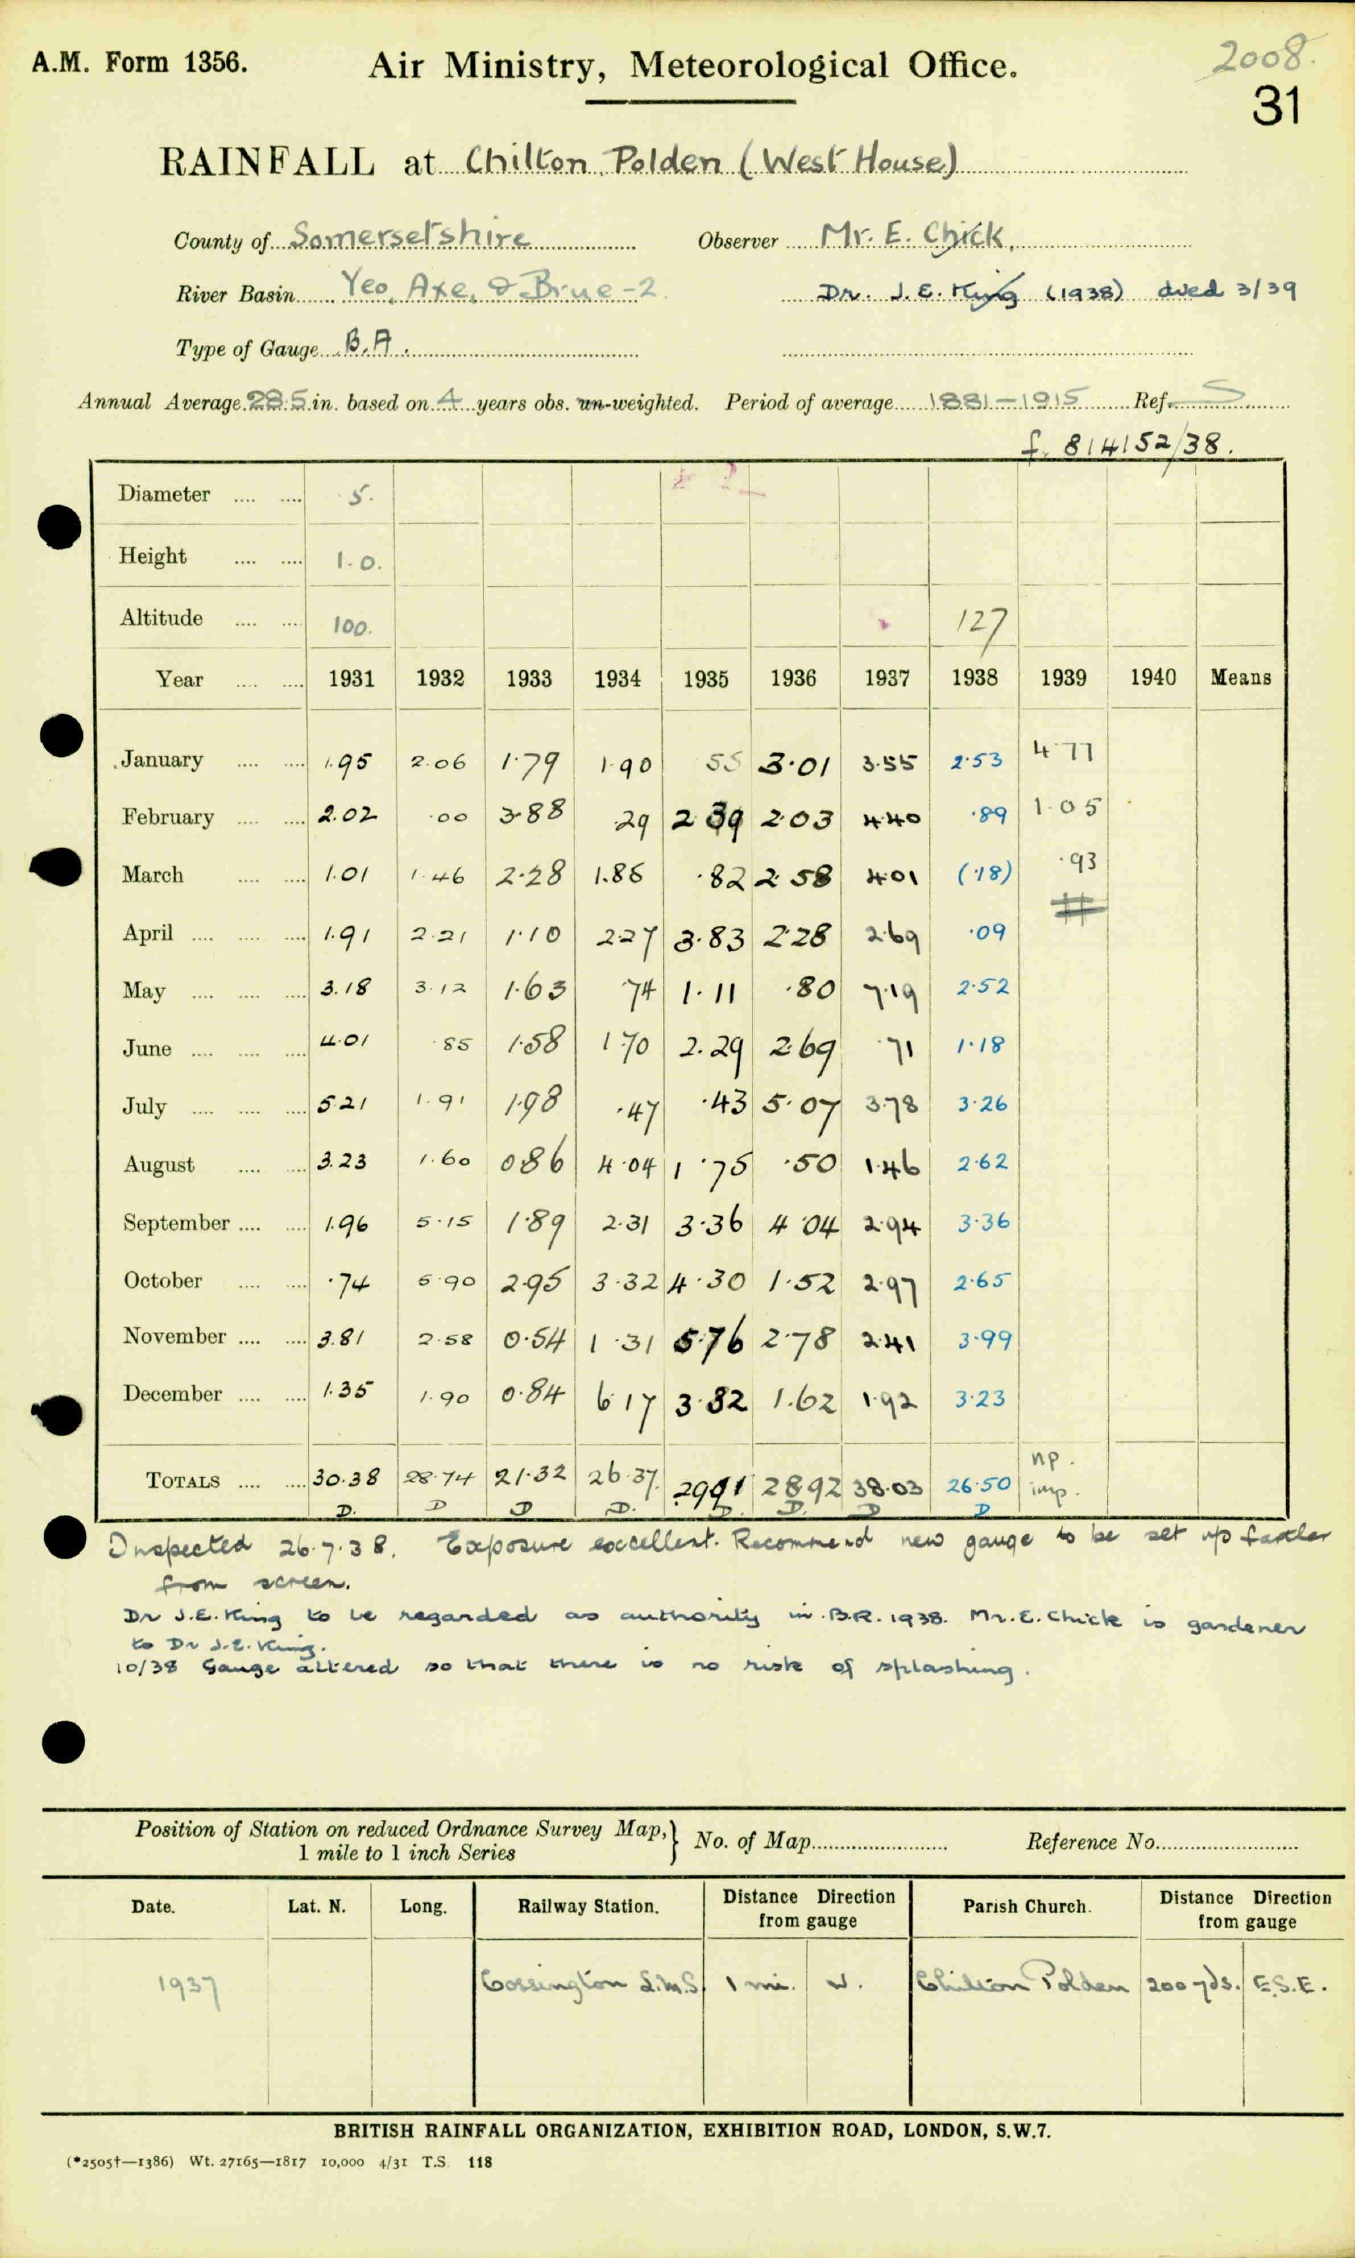 A.M. Form 1356.
Air Ministry, Meteorological Office.
2008.
31
RAINFALL at Chilton Polden (West House)
County of Somersetshire Observer Mr. E. Chick.
River Basin Yeo, Axe, & Brue-2 Dr. J.E. King (1938) died 3/39
Type of Gauge B.A.
Annual Average 28.5 in. based on 4 years obs. un-weighted. Period of average 1881-1915 Ref. S
f. 814152/38.
Diameter .... .... 5.
Height .... .... 1.0.
Altitude .... .... 100. 127
Year .... .... 1931 1932 1933 1934 1935 1936 1937 1938 1939 1940 Means
January .... .... 1.95 2.06 1.79 1.90 55 3.01 3.55 2.53 4.77
February .... .... 2.02 .00 3.88 .29 2.39 2.03 4.40 .89 1.05
March .... .... 1.01 1.46 2.28 1.85 .82 2.58 4.01 (.18) .93
April .... .... .... 1.91 2.21 1.10 2.27 3.83 2.28 2.69 .09
May .... .... .... 3.18 3.12 1.63 .74 1.11 .80 7.19 2.52
June .... .... .... 4.01 .85 1.58 1.70 2.29 2.69 .71 1.18
July .... .... .... 5.21 1.91 1.98 .47 .43 5.07 3.78 3.26
August .... .... 3.23 1.60 0.86 4.04 1.75 .50 1.46 2.62
September .... .... 1.96 5.15 1.89 2.31 3.36 4.04 2.94 3.36
October .... .... .74 5.90 2.95 3.32 4.30 1.52 2.97 2.65
November .... .... 3.81 2.58 0.54 1.31 5.76 2.78 2.41 3.99
December .... .... 1.35 1.90 0.84 6.17 3.32 1.62 1.92 3.23
TOTALS .... .... 30.38 28.74 21.32 26.37 29.91 28.92 38.03 26.50 np. imp.
D. D D D. D. D. D D
Inspected 26.7.38. Exposure excellent. Recommend new gauge to be set up farther
from screen.
Dr J.E. King to be regarded as authority in B.R. 1938. Mr. E. Chick is gardener
to Dr J.E. King.
10/38 Gauge altered so that there is no risk of splashing.
Position of Station on reduced Ordnance Survey Map,
1 mile to 1 inch Series } No. of Map Reference No.
Date. Lat. N. Long. Railway Station. Distance Direction from gauge Parish Church. Distance Direction from gauge
1937 Cossington L.M.S. 1 mi. W. Chilton Polden 200 yds. E.S.E.
BRITISH RAINFALL ORGANIZATION, EXHIBITION ROAD, LONDON, S.W.7.
(*2505†—1386) Wt. 27165—1817 10,000 4/31 T.S. 118